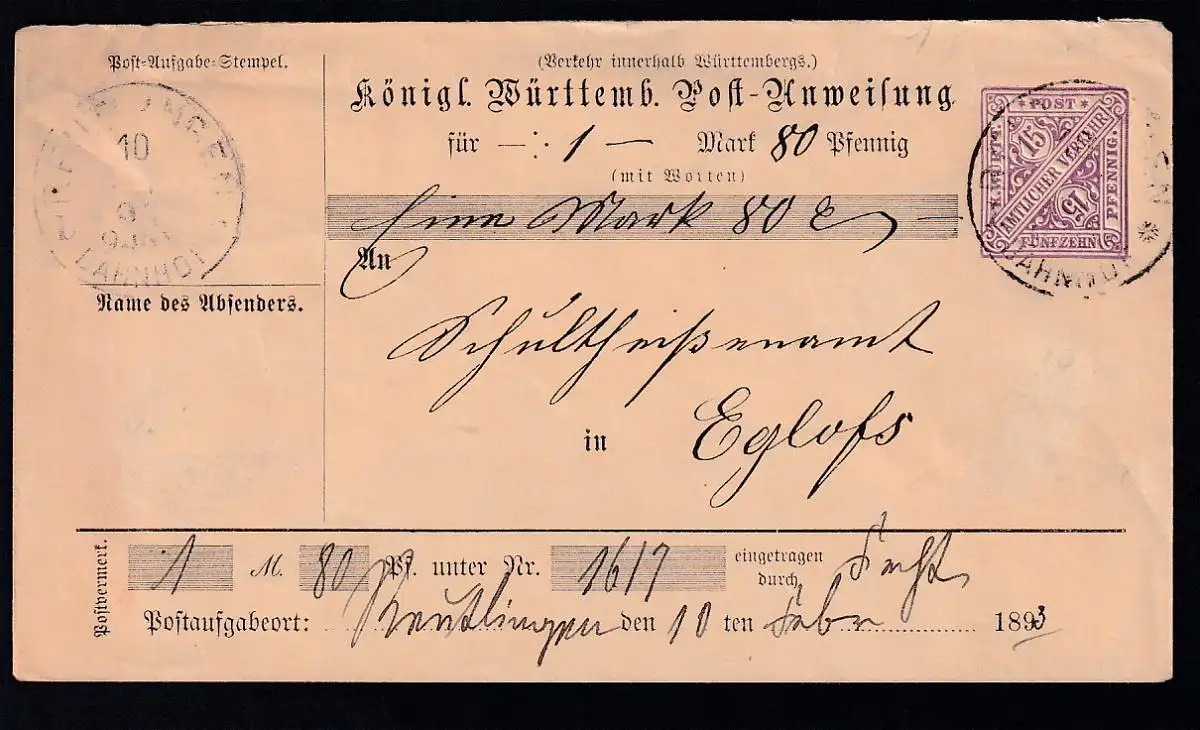 Post-Aufgabe-Stempel.
10
BAHNHOF
Name des Absenders.
(Verkehr innerhalb Württembergs.)
Königl. Württemb. Post-Anweisung
für 1 — Mark 80 Pfennig
(mit Worten)
Eine Mark 80
An
Schultheißenamt
in Eglofs
* POST *
K.WÜRTT.
15
AMTLICHER VERKEHR
15
PFENNIG.
FÜNFZEHN
BAHNHOF
Postvermerk.
1 M. 80 Pf. unter Nr. 1617 eingetragen
durch
Postaufgabeort: Reutlingen den 10 ten Febr 1893